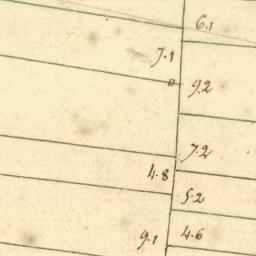 6.1
7.1
9.2
7.2
4.8
5.2
9.1 4.6